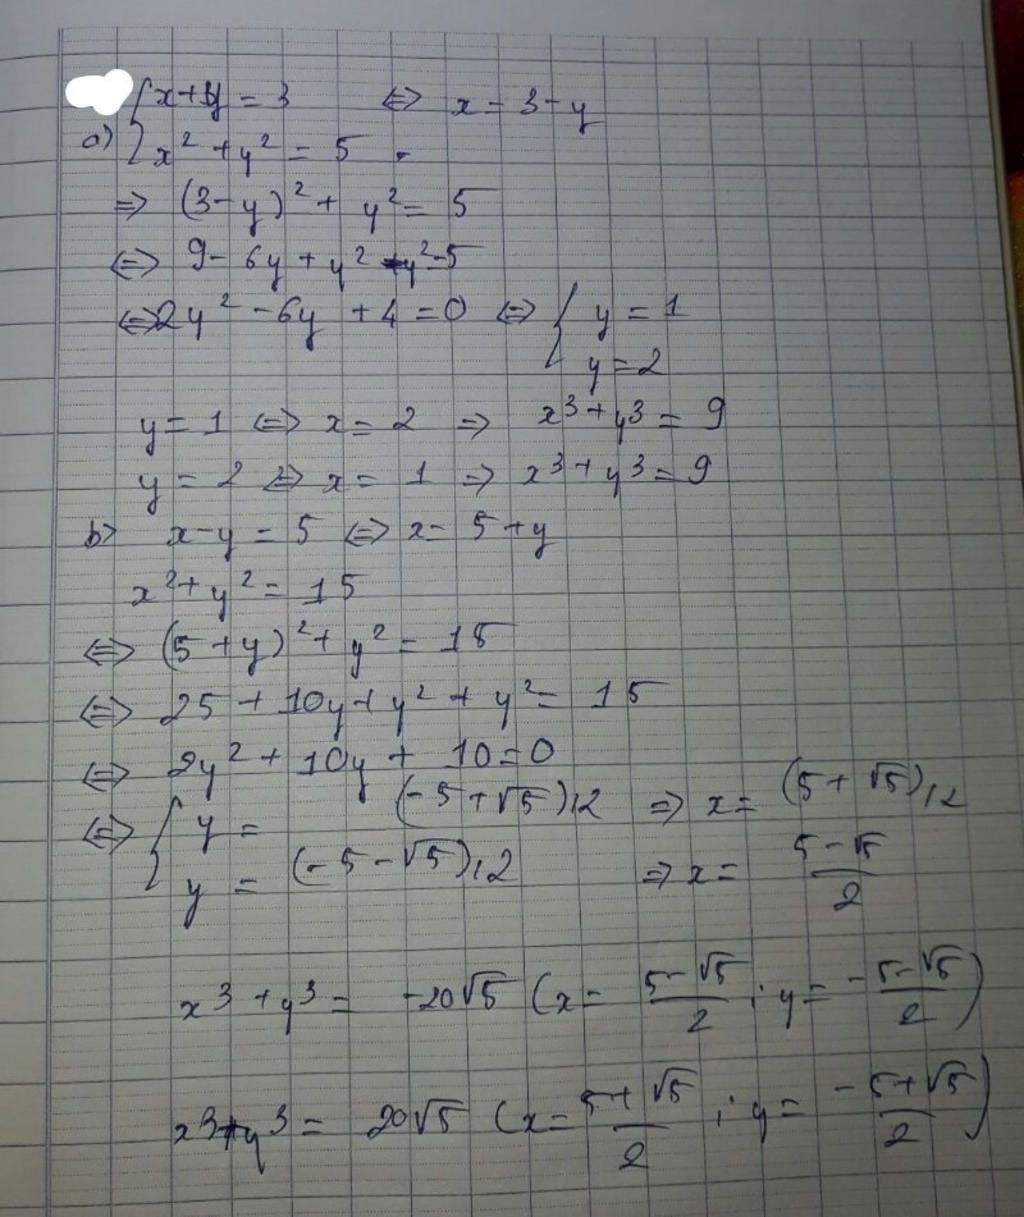 { x+y = 3 <=> x = 3-y
a) { x² + y² = 5
=> (3-y)² + y² = 5
<=> 9 - 6y + y² + y² = 5
<=> 2y² - 6y + 4 = 0 <=> { y = 1
y = 2
y = 1 <=> x = 2 => x³ + y³ = 9
y = 2 <=> x = 1 => x³ + y³ = 9
b) x-y = 5 <=> x = 5 + y
x² + y² = 15
<=> (5 + y)² + y² = 15
<=> 25 + 10y + y² + y² = 15
<=> 2y² + 10y + 10 = 0
<=> { y = (-5 + √5)/2 => x = (5 + √5)/2
y = (-5 - √5)/2 => x = (5 - √5)/2
x³ + y³ = -20√5 (x = (5 - √5)/2 ; y = (-5 - √5)/2)
x³ + y³ = 20√5 (x = (5 + √5)/2 ; y = (-5 + √5)/2)